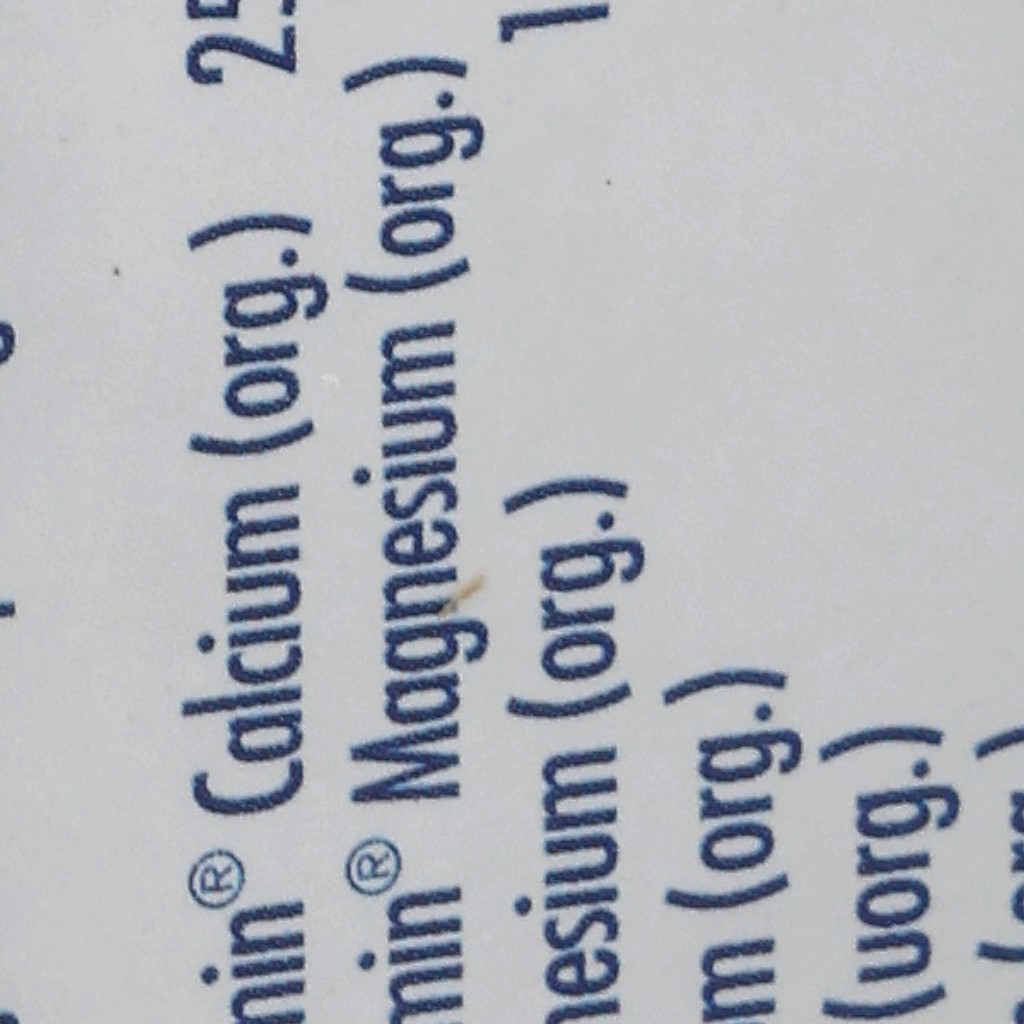 min® Calcium (org.) 25
min® Magnesium (org.)
nesium (org.) 1
m (org.)
(uorg.)
(org.)